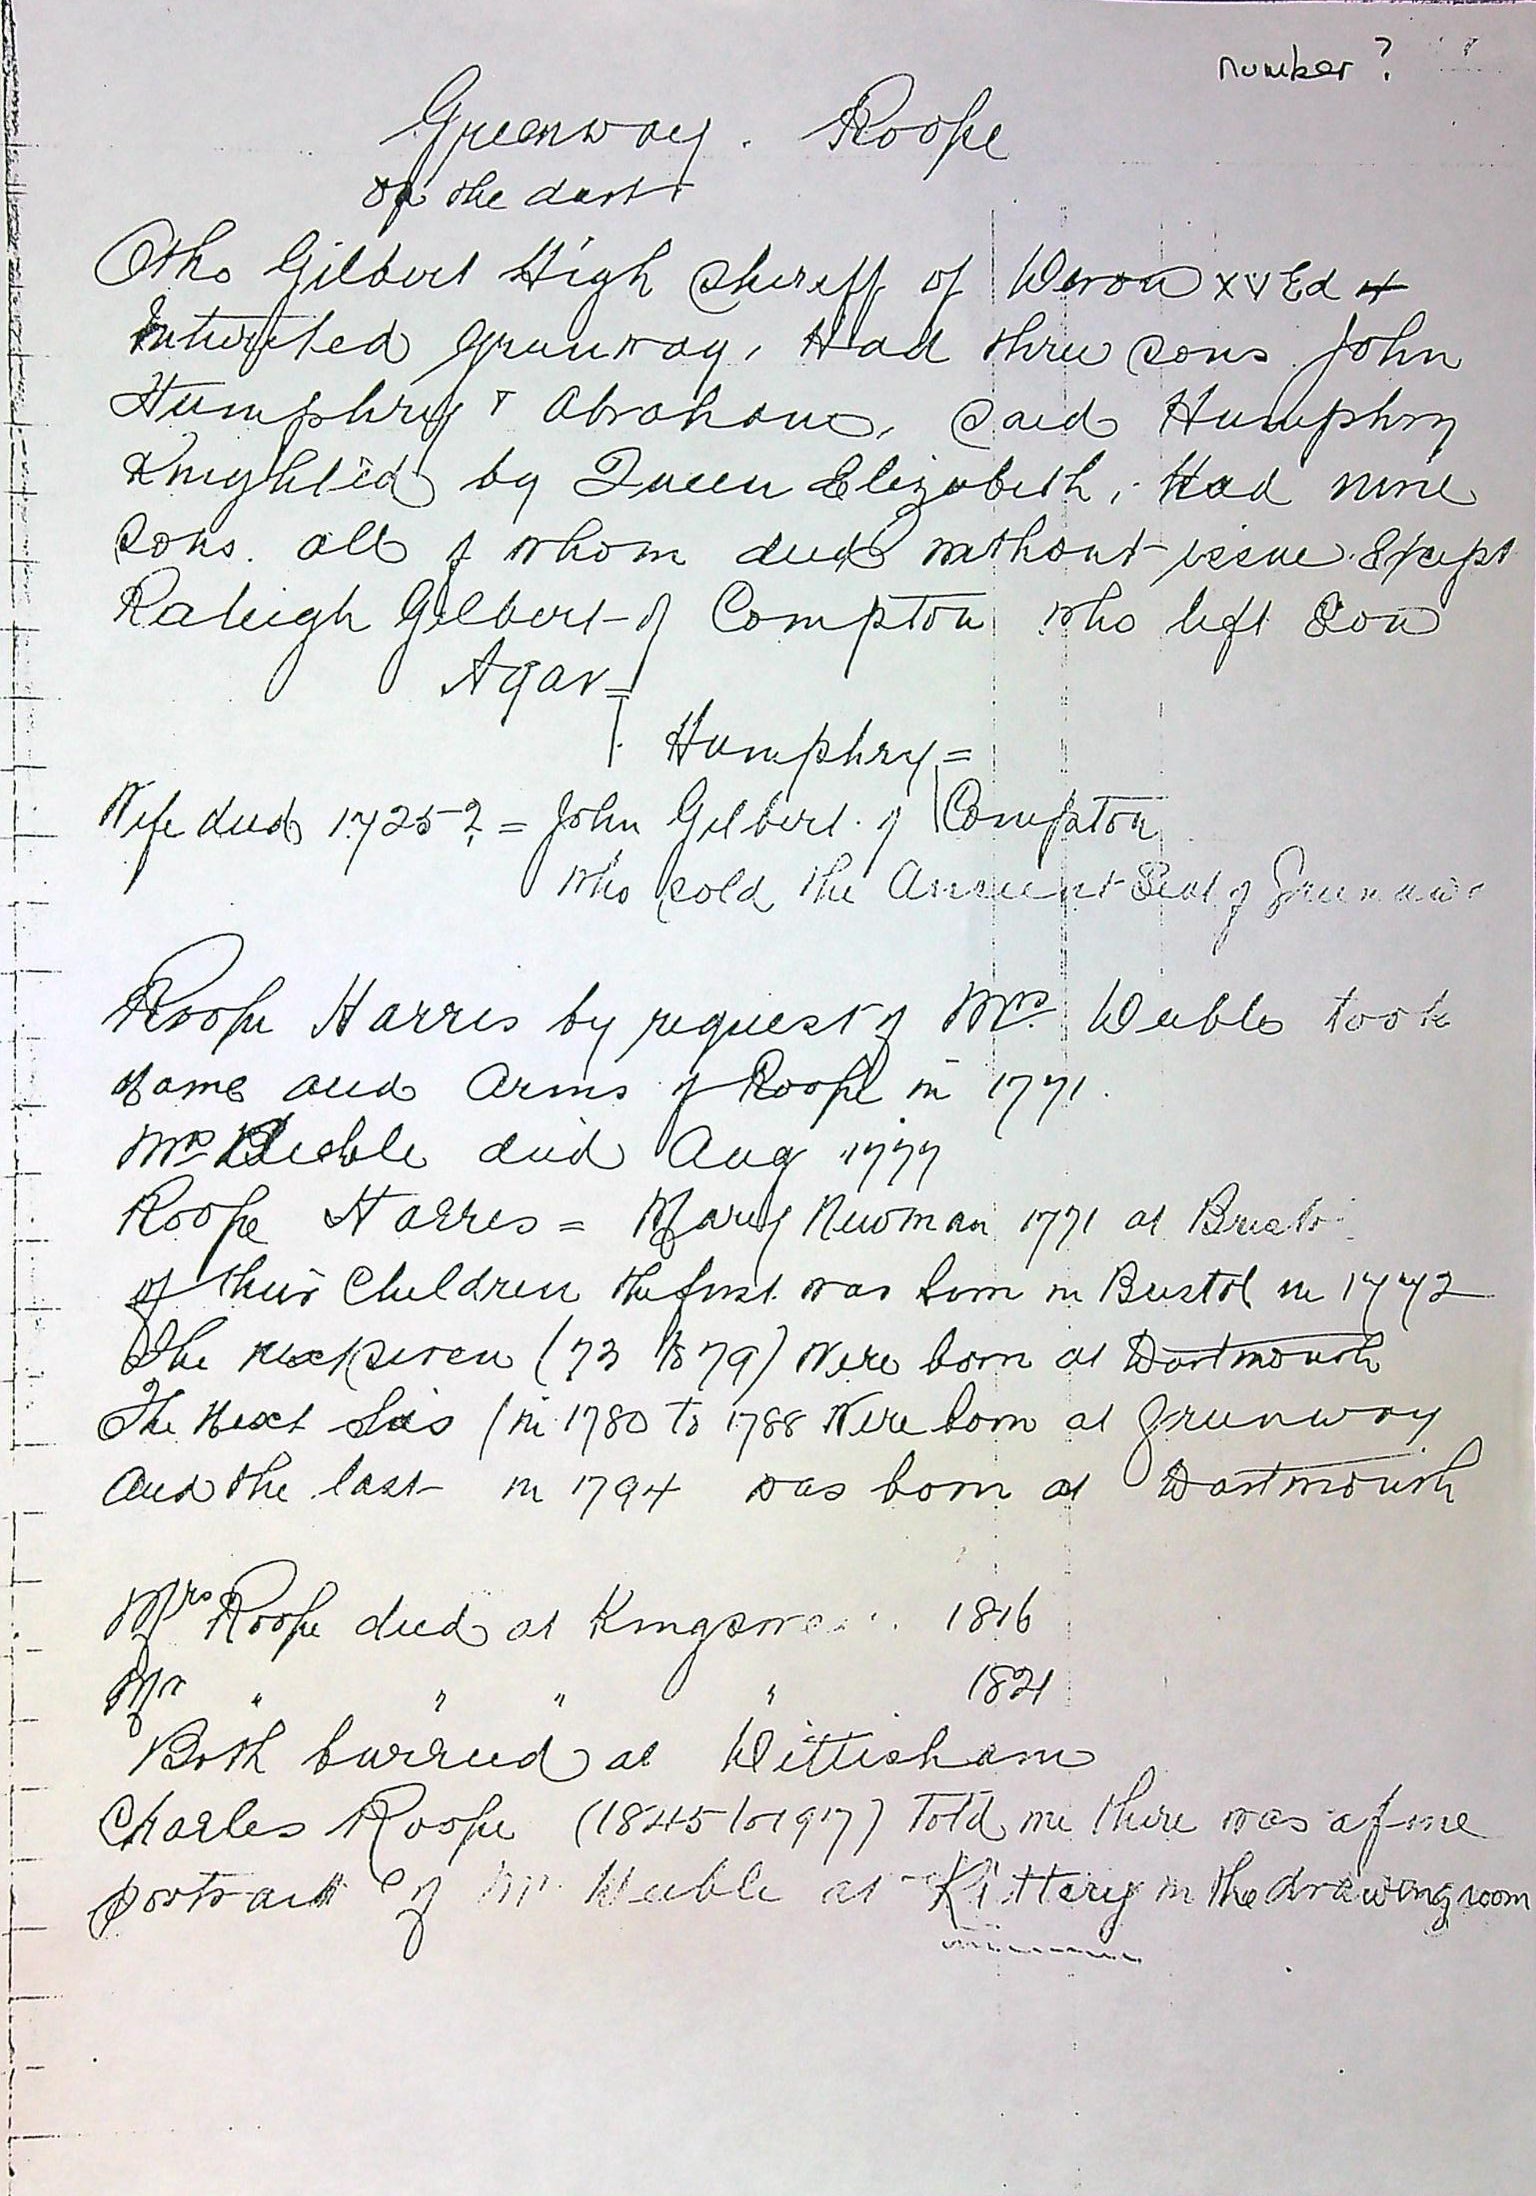 number ?
Greenway. Roope
on the dart
Otho Gilbert High Sheriff of Devon XV Ed 4
Inherited Greenway, Had three sons John
Humphry + Abraham, said Humphry
Knighted by Queen Elizabeth, Had nine
sons. all of whom died without issue Except
Raleigh Gilbert of Compton who left Son
Agar =
Humphry =
Wife died 1725? = John Gilbert of Compton
who sold the Ancient Seat of Greenaway
Roope Harris by request of Mrs. Weeble took
name and Arms of Roope in 1771.
Mrs Weeble died Aug 1777
Roope Harris = Mary Newman 1771 at Bristo
of their Children the first was born in Bristol in 1772
The next seven (73 to 79) were born at Dartmouth
The next six (in 1780 to 1788 were born at Greenway
and the last in 1794 was born at Dartmouth
Mrs Roope died at Kingswe 1816
Mr " " " " 1821
Both burried at Dittisham
Charles Roope (1845 to 1917) Told me there was a fine
portrait of Mr Weeble at Kittery in the drawing room